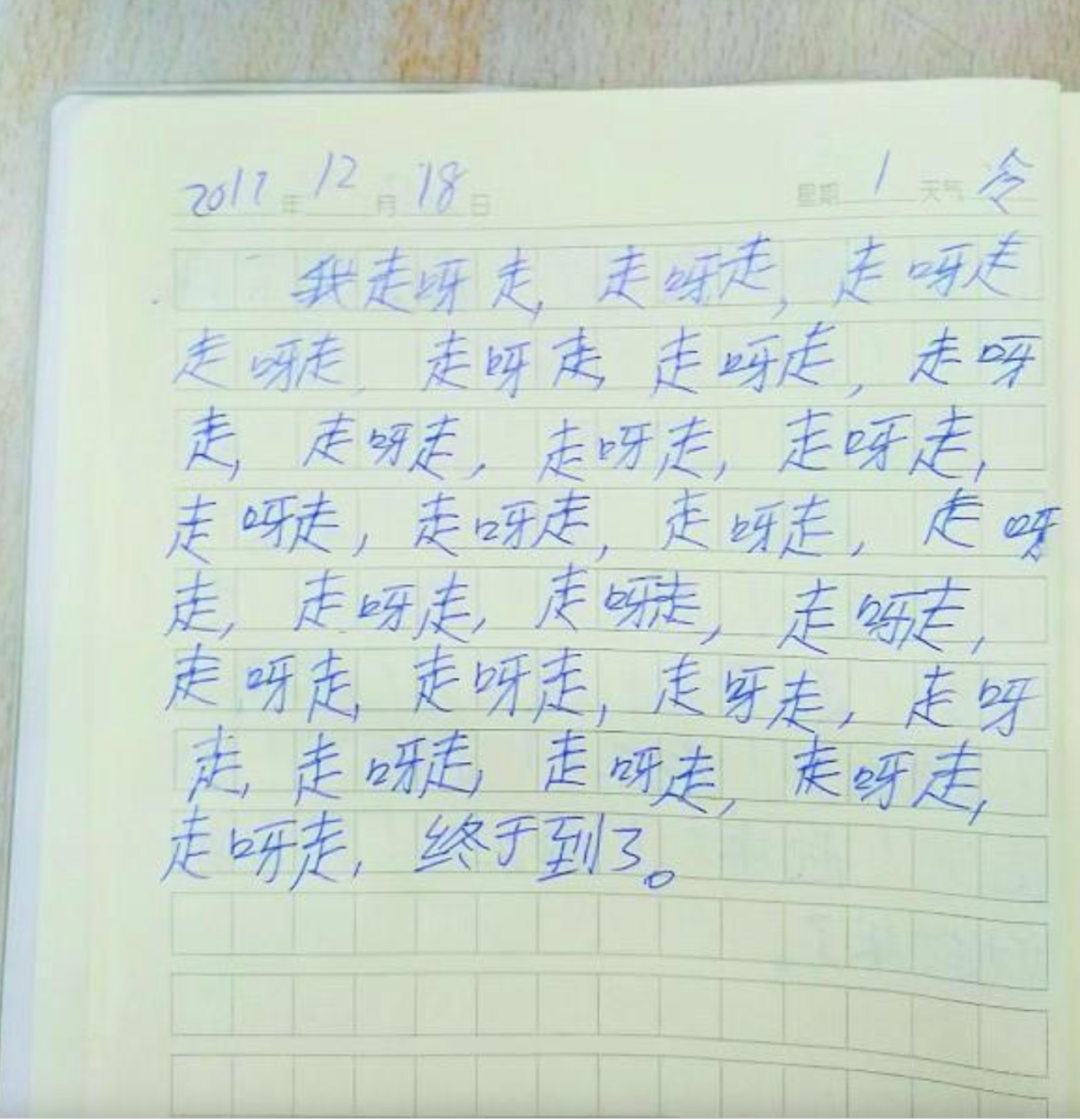 2017年12月18日 星期1 天气冷
我走呀走,走呀走,走呀走
走呀走,走呀走,走呀走,走呀
走,走呀走,走呀走,走呀走,
走呀走,走呀走,走呀走,走呀
走,走呀走,走呀走,走呀走,
走呀走,走呀走,走呀走,走呀
走,走呀走,走呀走,走呀走,
走呀走,终于到了。